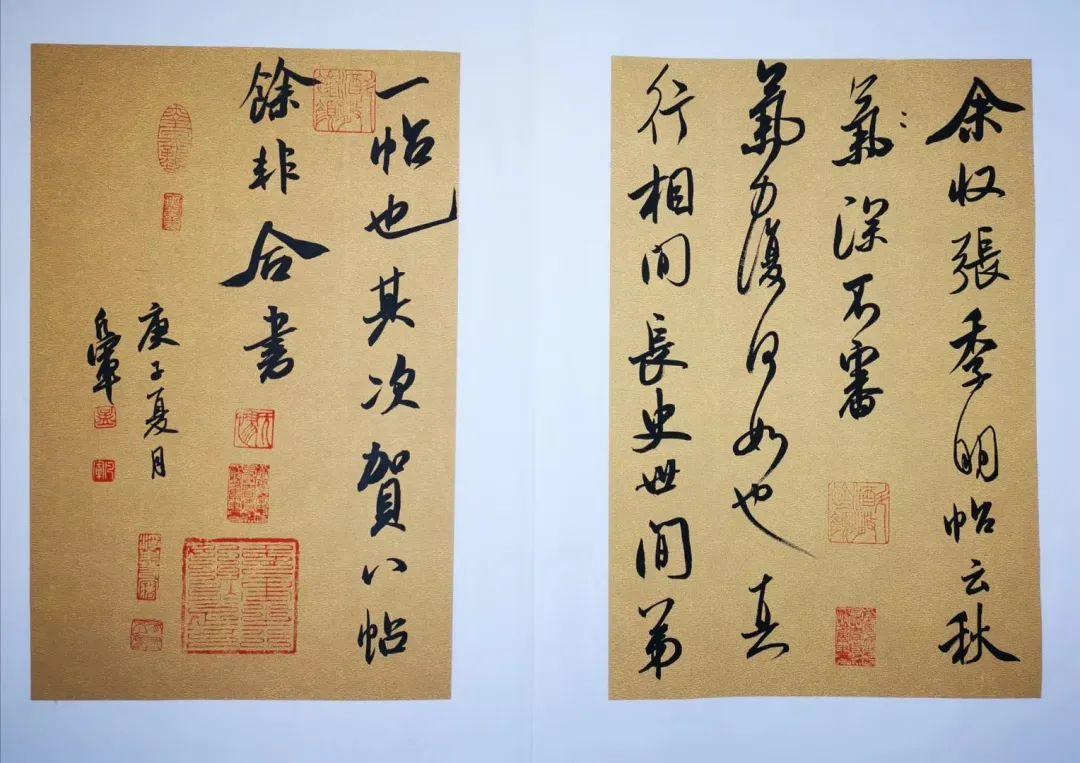 余収張季明帖云秋
氣深不審
氣力復何如也真
行相間長史世間第
一帖也其次賀八帖
餘非合書
庚子夏月